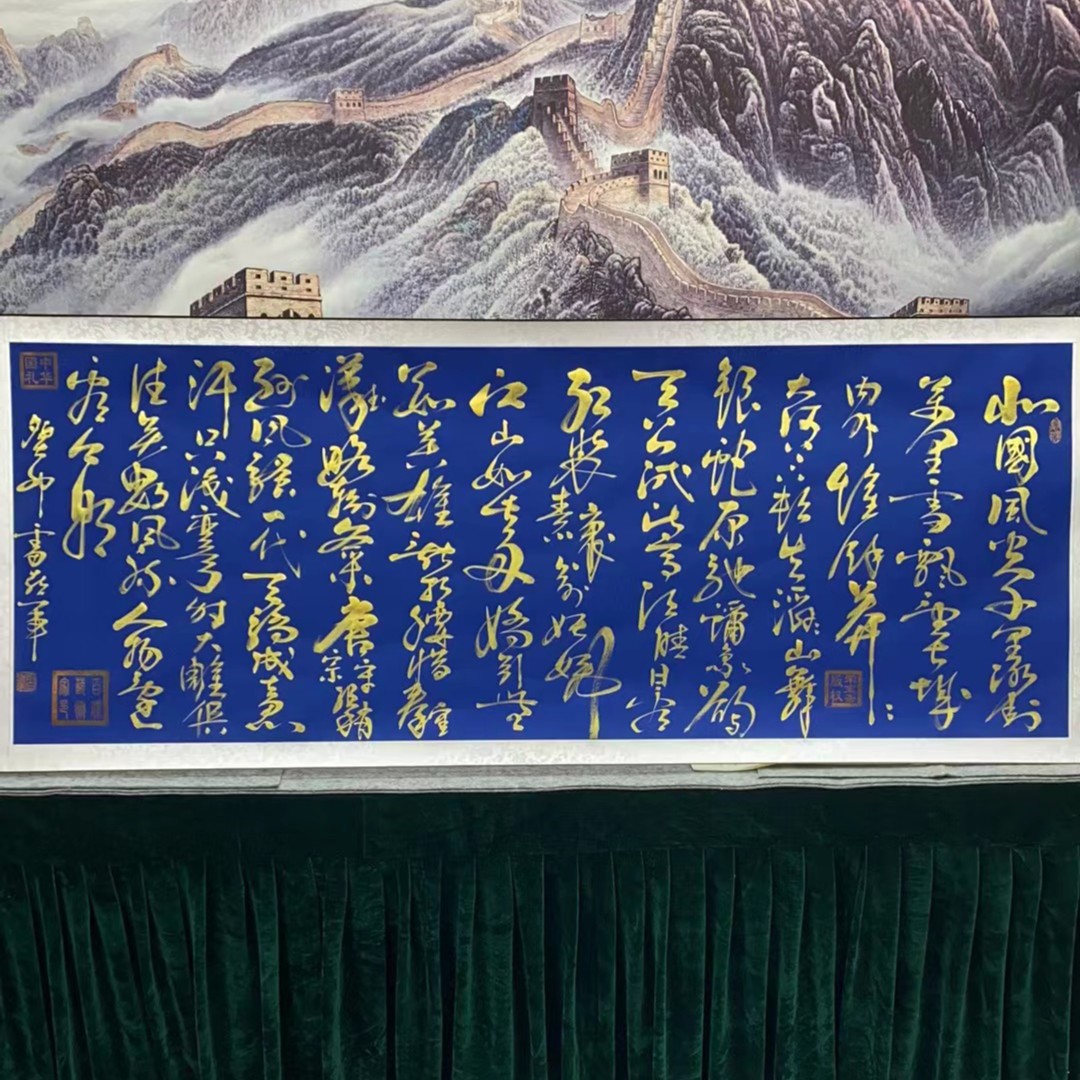 北國風光千里冰封
萬里雪飄望長城
内外惟餘莽〻
大河上下頓失滔〻山舞
銀蛇原馳蠟象欲
天公試比高須晴日看
紅裝素裹分外妖嬈
江山如此多嬌引無
數英雄競折腰惜秦皇
漢武略輸文采唐宗宋祖稍
遜風騷一代天驕成吉思
汗只識彎弓射大雕俱
往矣數風流人物還
看今朝
癸卯書
中华国礼